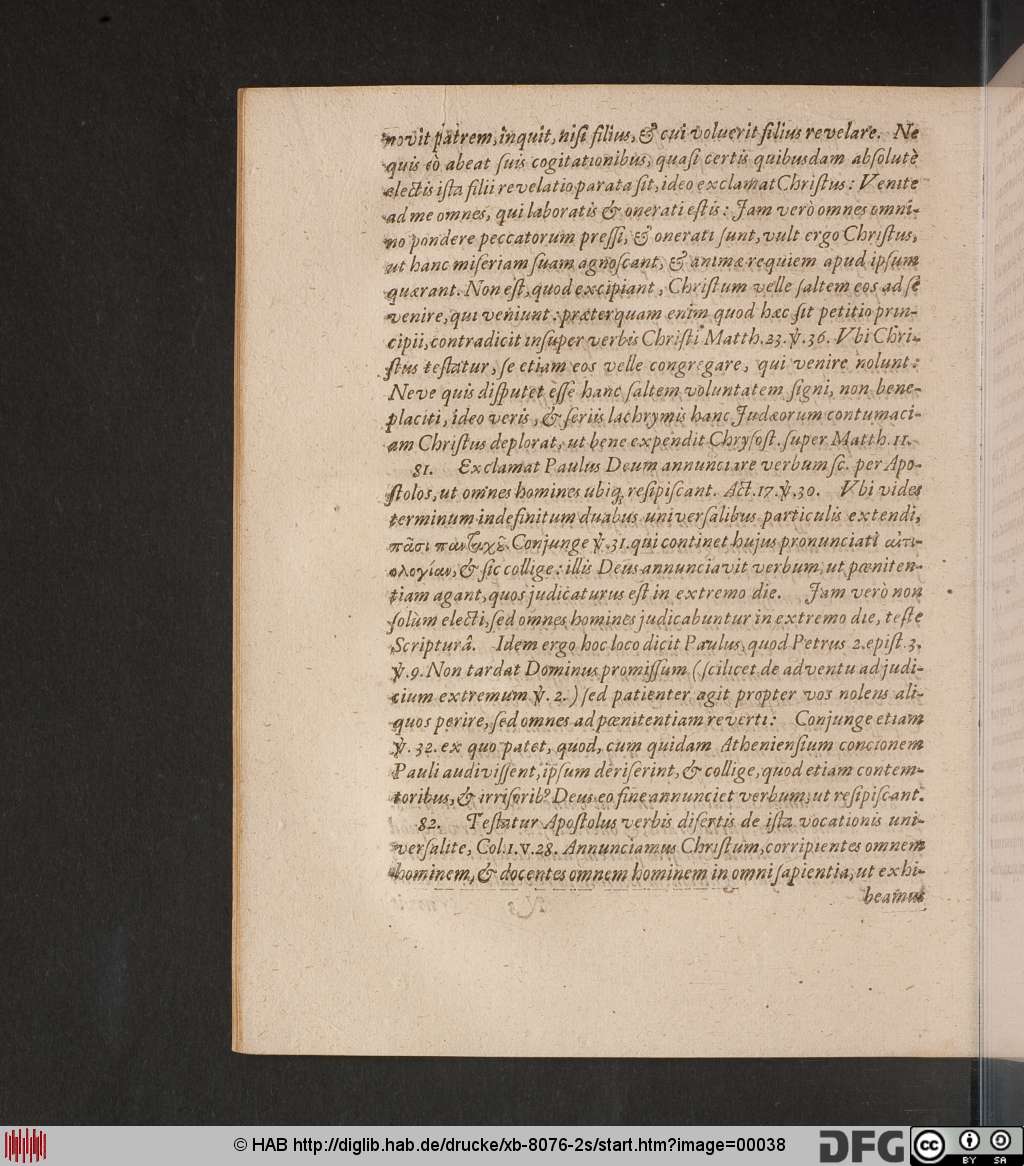 novit patrem, inquit, nisi filius, & cui voluerit filius revelare. Ne
quis eò abeat suis cogitationibus, quasi certis quibusdam absolutè
electis ista filii revelatio parata sit, ideo exclamat Christus: Venite
ad me omnes, qui laboratis & onerati estis: Jam verò omnes omni-
no pondere peccatorum pressi, & onerati sunt, vult ergo Christus,
ut hanc miseriam suam agnoscant, & animæ requiem apud ipsum
quærant. Non est, quod excipiant, Christum velle saltem eos ad se
venire, qui veniunt: præterquam enim quod hæc sit petitio prin-
cipii, contradicit insuper verbis Christi Matth. 23. ℣. 36. Vbi Chri-
stus testatur, se etiam eos velle congregare, qui venire nolunt:
Neve quis disputet esse hanc saltem voluntatem signi, non bene-
placiti, ideo veris, & seriis lachrymis hanc Judæorum contumaci-
am Christus deplorat, ut bene expendit Chrysost. super Matth. 11.
81. Exclamat Paulus Deum annunciare verbum sc. per Apo-
stolos, ut omnes homines ubiq; resipiscant. Act. 17. ℣. 30. Vbi vides
terminum indefinitum duabus universalibus particulis extendi,
πᾶσι πανταχȣ̃. Conjunge ℣. 31. qui continet hujus pronunciati αἰτι-
ολογίαν, & sic collige: illis Deus annunciavit verbum, ut pœniten-
tiam agant, quos judicaturus est in extremo die. Jam verò non
solùm electi, sed omnes homines judicabuntur in extremo die, teste
Scripturâ. Idem ergo hoc loco dicit Paulus, quod Petrus 2. epist. 3.
℣. 9. Non tardat Dominus promissum (scilicet de adventu ad judi-
cium extremum ℣. 2.) sed patienter agit propter vos nolens ali-
quos perire, sed omnes ad pœnitentiam reverti: Conjunge etiam
℣. 32. ex quo patet, quod, cum quidam Atheniensium concionem
Pauli audivissent, ipsum deriserint, & collige, quod etiam contem-
toribus, & irrisorib9 Deus eo fine annunciet verbum, ut resipiscant.
82. Testatur Apostolus verbis disertis de ista vocationis uni-
versalite, Col. 1. v. 28. Annunciamus Christum, corripientes omnem
hominem, & docentes omnem hominem in omni sapientia, ut exhi-
beamus
© HAB http://diglib.hab.de/drucke/xb-8076-2s/start.htm?image=00038
DFG
cc BY SA